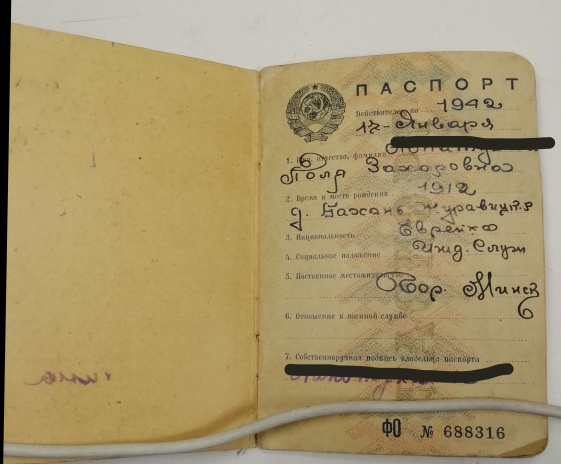 ПАСПОРТ
Действителен по 1942
17 - Января
1. Имя, отчество, фамилия
Поля Захаровна
2. Время и место рождения 1912
д. Бахань Журавич. р
3. Национальность Еврейка
4. Социальное положение Ижд. Служ
5. Постоянное местожительство
Гор. Минск
6. Отношение к военной службе
7. Собственноручная подпись владельца паспорта
ФО № 688316